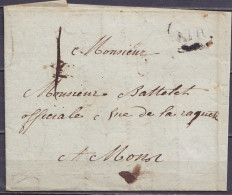 a Monsieur
Monsieur Battelet
officiale rue de la raquet
A Mons